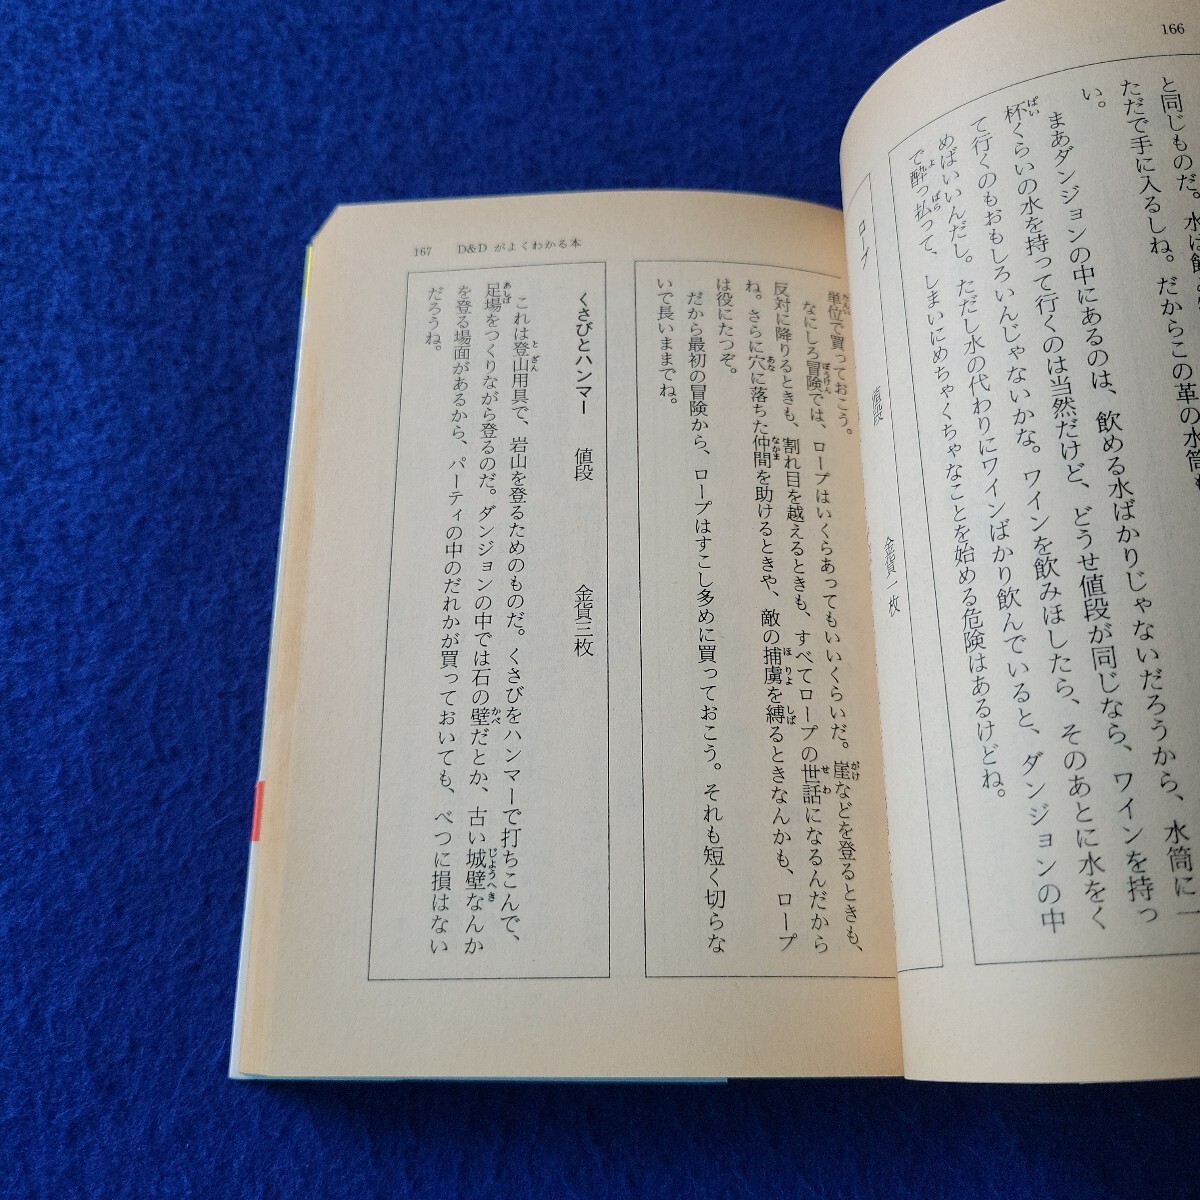 166
と同じものだ。水は飲
ただで手に入るしね。だからこの革の水筒も
い。
まあダンジョンの中にあるのは、飲める水ばかりじゃないだろうから、水筒に一
杯くらいの水を持って行くのは当然だけど、どうせ値段が同じなら、ワインを持っ
て行くのもおもしろいんじゃないかな。ワインを飲みほしたら、そのあとに水をく
めばいいんだし。ただし水の代わりにワインばかり飲んでいると、ダンジョンの中
で酔っ払って、しまいにめちゃくちゃなことを始める危険はあるけどね。
ロープ 値段 金貨一枚
167 D&Dがよくわかる本
単位で買っておこう。
なにしろ冒険では、ロープはいくらあってもいいくらいだ。崖などを登るときも、
反対に降りるときも、割れ目を越えるときも、すべてロープの世話になるんだから
ね。さらに穴に落ちた仲間を助けるときや、敵の捕虜を縛るときなんかも、ロープ
は役にたつぞ。
だから最初の冒険から、ロープはすこし多めに買っておこう。それも短く切らな
いで長いままでね。
くさびとハンマー 値段 金貨三枚
これは登山用具で、岩山を登るためのものだ。くさびをハンマーで打ちこんで、
足場をつくりながら登るのだ。ダンジョンの中では石の壁だとか、古い城壁なんか
を登る場面があるから、パーティの中のだれかが買っておいても、べつに損はない
だろうね。